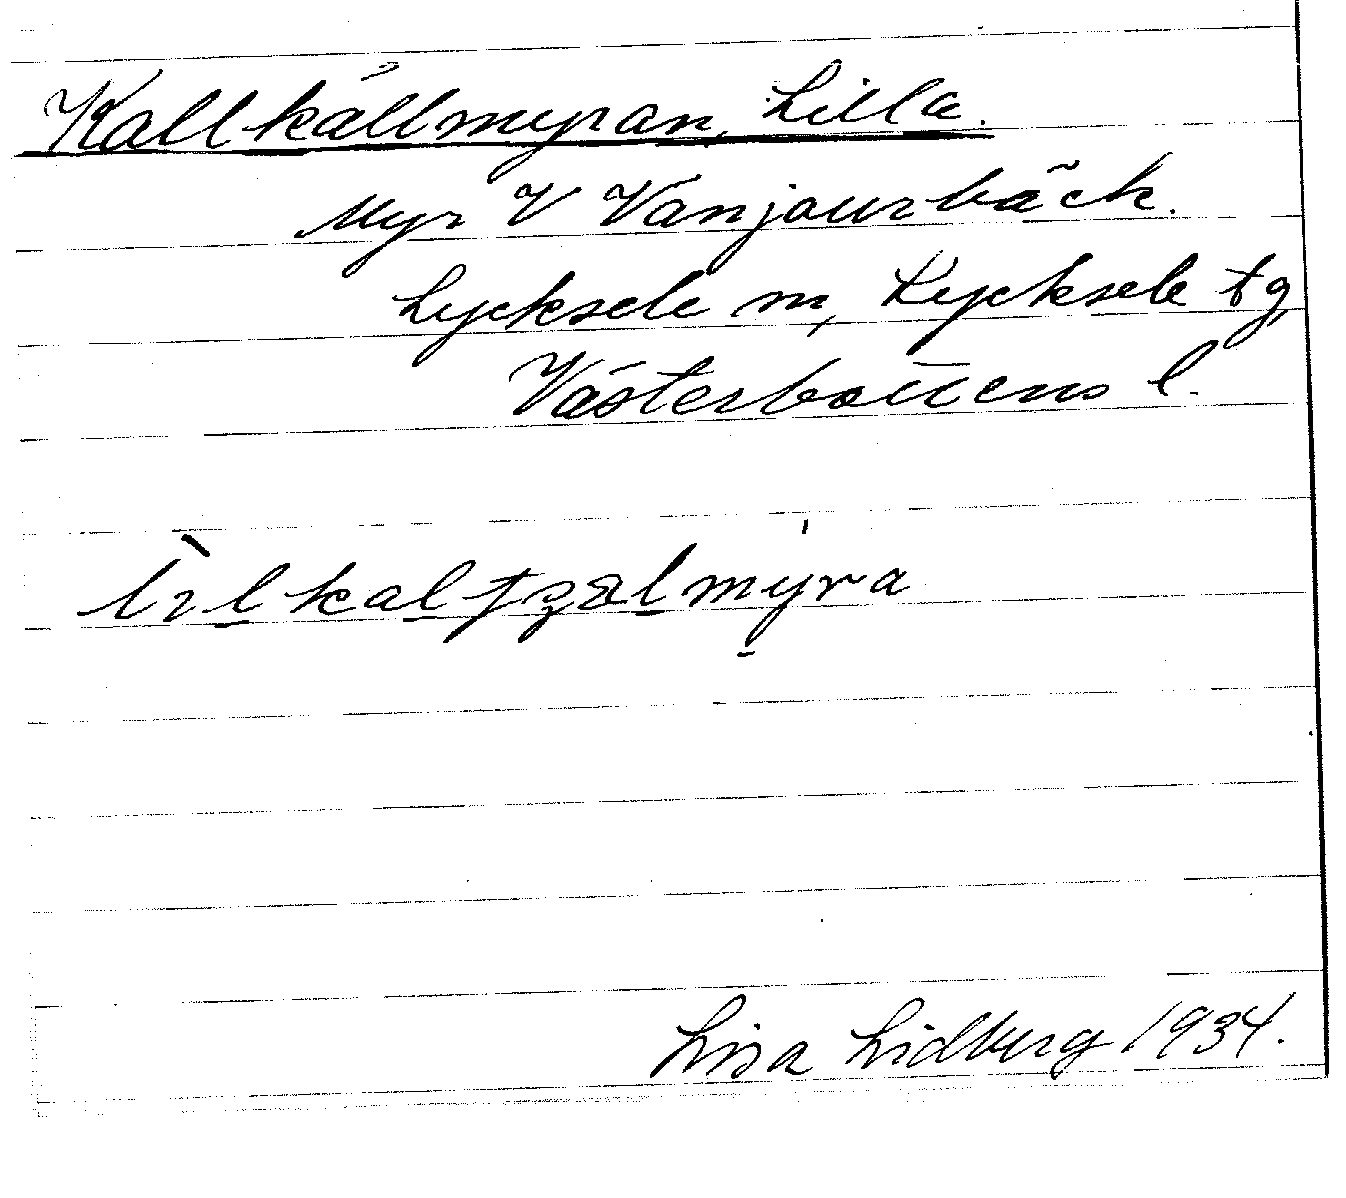 Kallkällmyran, Lilla.
Myr V Vanjaurbäck.
Lycksele m, Lycksele tg
Västerbottens l.
Lisa Lidberg 1934.